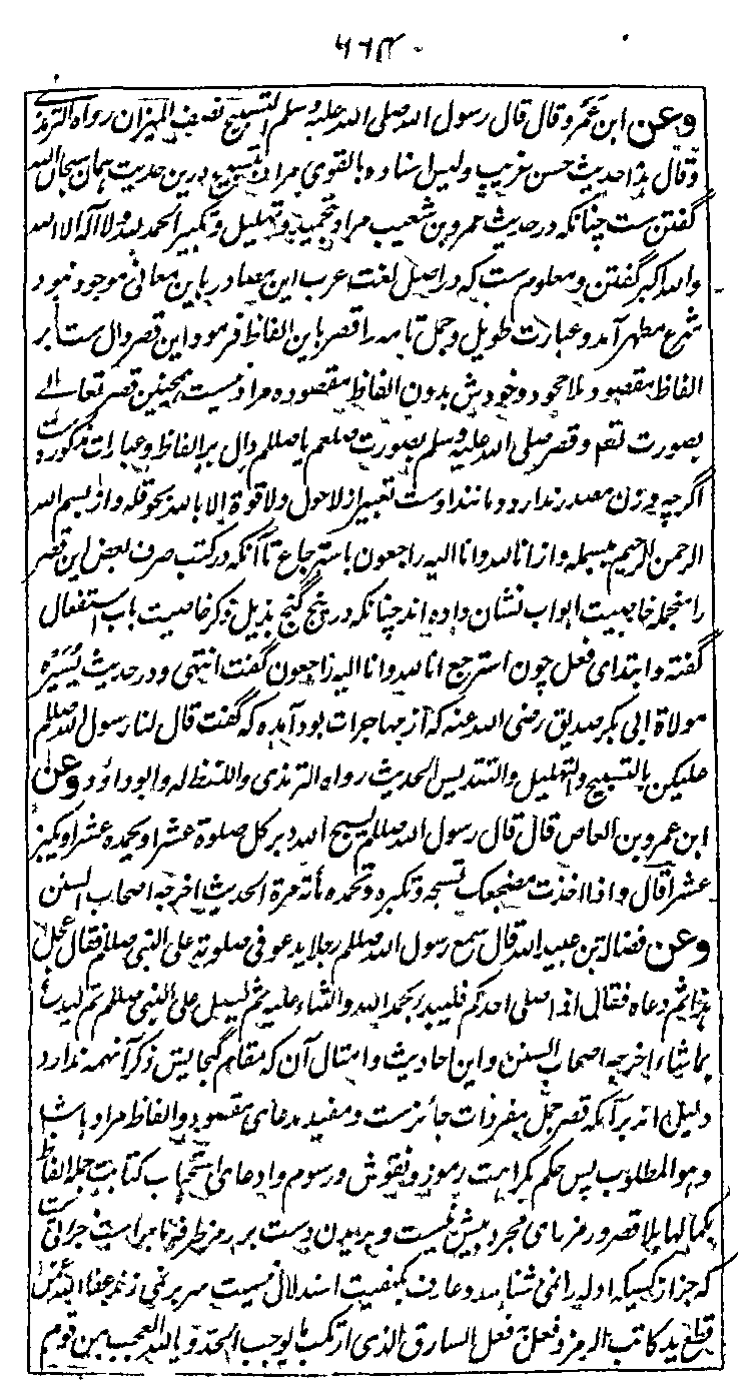 ٦٦٣
وعن ابن عمرو قال قال رسول الله صلى الله عليه وسلم التسبيح نصف الميزان رواه الترمذي
وقال هذا حديث حسن غريب وليس اسناده بالقوي مراد بتسبيح درين حديث همان سبحان الله
گفتن ست چنانكه در حديث عمرو بن شعيب مراد بتحميد وتهليل وتكبير الحمد لله ولا آله الا الله
والله اكبر گفتن ومعلوم ست كه در اصل لغت عرب اين مصادر باين معانی موجود نبود
شرع مطهر آمد وعبارت طويل وجمل تامه را قصر باين الفاظ فرمود واين قصر دال ست بر
الفاظ مقصود بلا جحود وخودش بدون الفاظ مقصوده مراد نيست همچنين قصر تعالے
بصورت تعم وقصر صلى الله عليه وسلم بصورت صلعم يا صللم دال بر الفاظ وعبارات مذكوره ست
اگرچه وزن مصدر ندارد ومانند اوست تعبير از لاحول ولا قوة الا بالله بحوقله واز بسم الله
الرحمن الرحيم ببسمله واز انا لله وانا اليه راجعون باسترجاع تا آنكه در كتب صرف بعض اين قصر
را منجمله خاصيت ابواب نشان داده اند چنانكه در پنج گنج بذيل ذكر خاصيت باب استفعال
گفته وابتدای فعل چون استرجع انا لله وانا اليه راجعون گفت انتهى ودر حديث يُسَيْرَه
مولاة ابی بكر صديق رضى الله عنه كه از مهاجرات بود آمده كه گفت قال لنا رسول الله صللم
عليكن بالتسبيح والتهليل والتقديس الحديث رواه الترمذى واللفظ له وابو داؤد وعن
ابن عمرو بن العاص قال قال رسول الله صللم يسبح الله دبر كل صلوة عشرا ويحمده عشرا ويكبر
عشرا قال واذا اخذت مضجعك تسبحه وتكبره وتحمده مأته مرة الحديث اخرجه اصحاب السنن
وعن فضالة بن عبيد الله قال سمع رسول الله صللم رجلا يدعو فى صلوته على النبى صللم فقال عجل
هذا ثم دعاه فقال اذا صلى احدكم فليبدء بحمد الله والثناء عليه ثم ليصل على النبى صللم ثم ليدع
بما شاء اخرجه اصحاب السنن واين احاديث وامثال آن كه مقام گنجايش ذكر آنهمه ندارد
دليل اند بر آنكه قصر جمل بمفردات جائزست ومفيد مدعای مقصود والفاظ مراد باشد
وهو المطلوب پس حكم بكراهت رموز ونقوش ورسوم وادعای استحباب كتابت جمله الفاظ
بكمالها بلا قصر ورمز رای مجرد بيش نيست وبريدن دست بر رمز طرفه ماجراست جرأتی ست
كه جز از كسيكه ادله را نمی شناسد وعارف بكيفيت استدلال نيست سر بر نمی زند عفا الله عمن
قطع يد كاتب الرمز وفعل به فعل السارق الذى ارتكب ما يوجب الحد ويا لله العجب من قوم